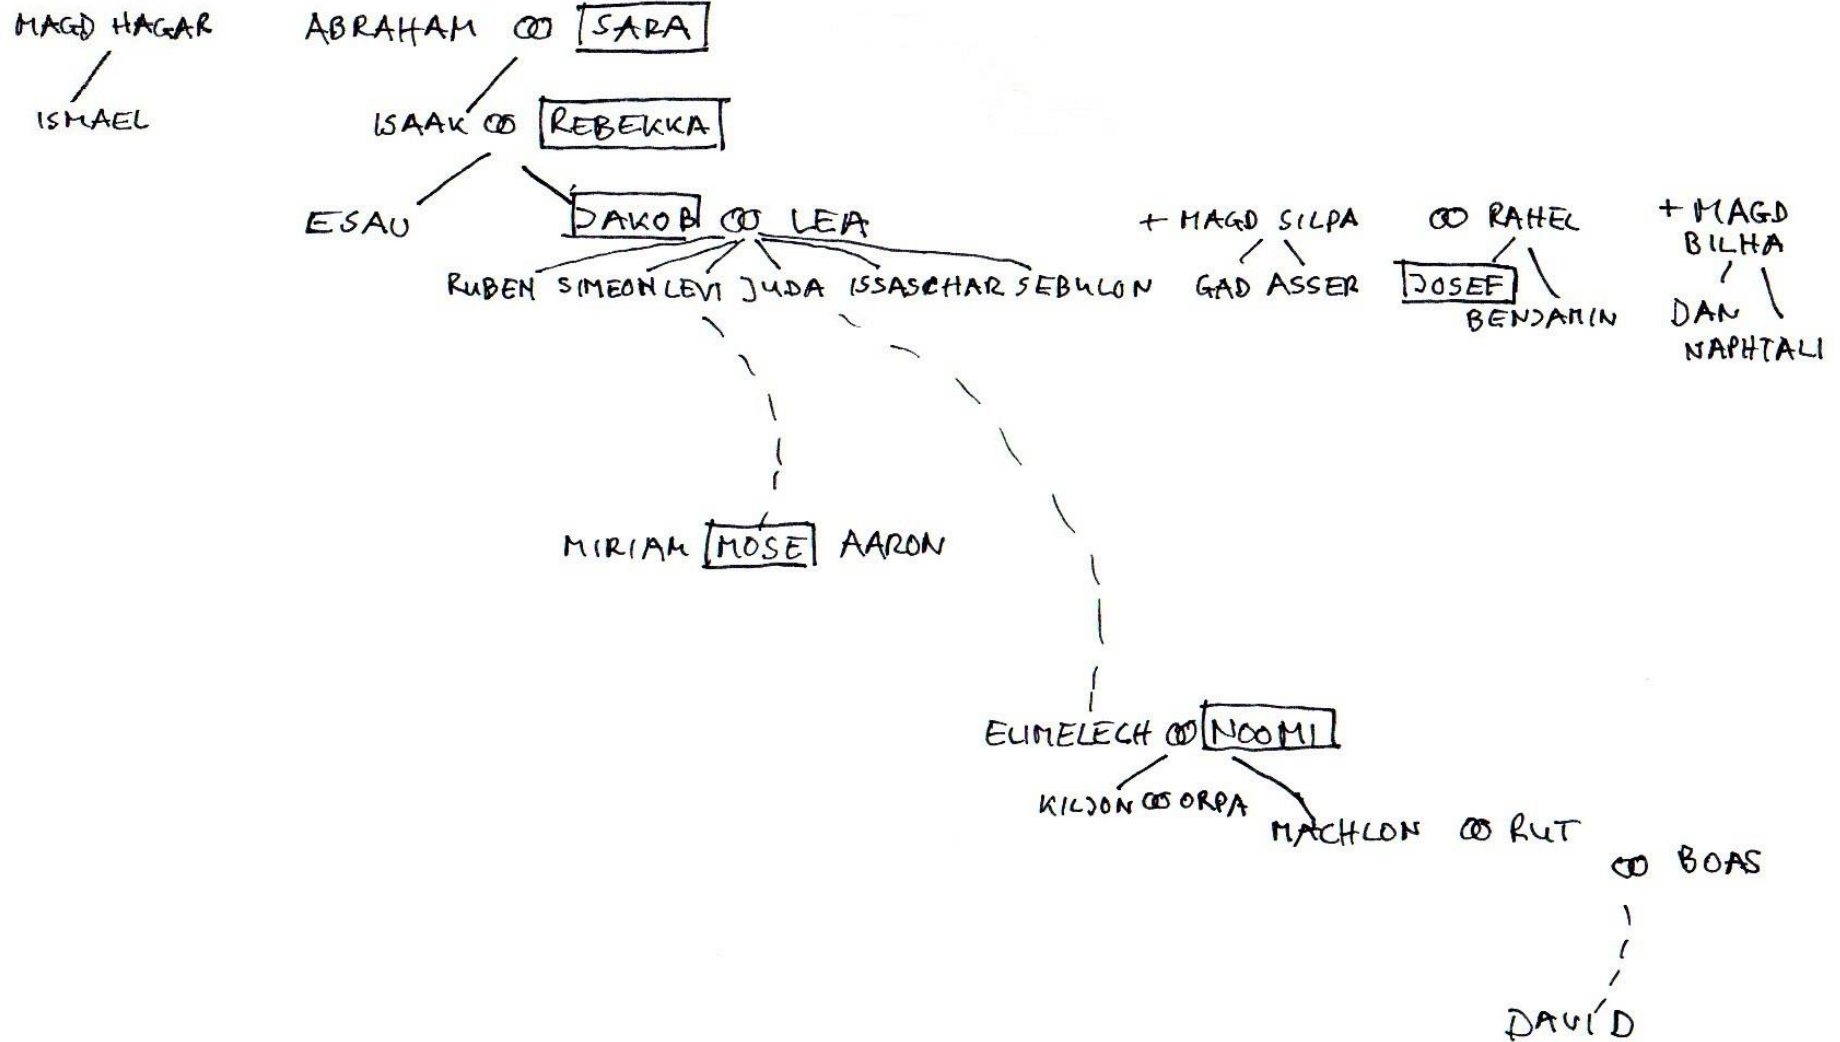 MAGD HAGAR ABRAHAM ∞ SARA
ISMAEL ISAAK ∞ REBEKKA
ESAU JAKOB ∞ LEA + MAGD SILPA ∞ RAHEL + MAGD
BILHA
RUBEN SIMEON LEVI JUDA ISSASCHAR SEBULON GAD ASSER JOSEF
BENJAMIN DAN
NAPHTALI
MIRIAM MOSE AARON
ELIMELECH ∞ NOOMI
KILJON ∞ ORPA
MACHLON ∞ RUT
∞ BOAS
DAVID